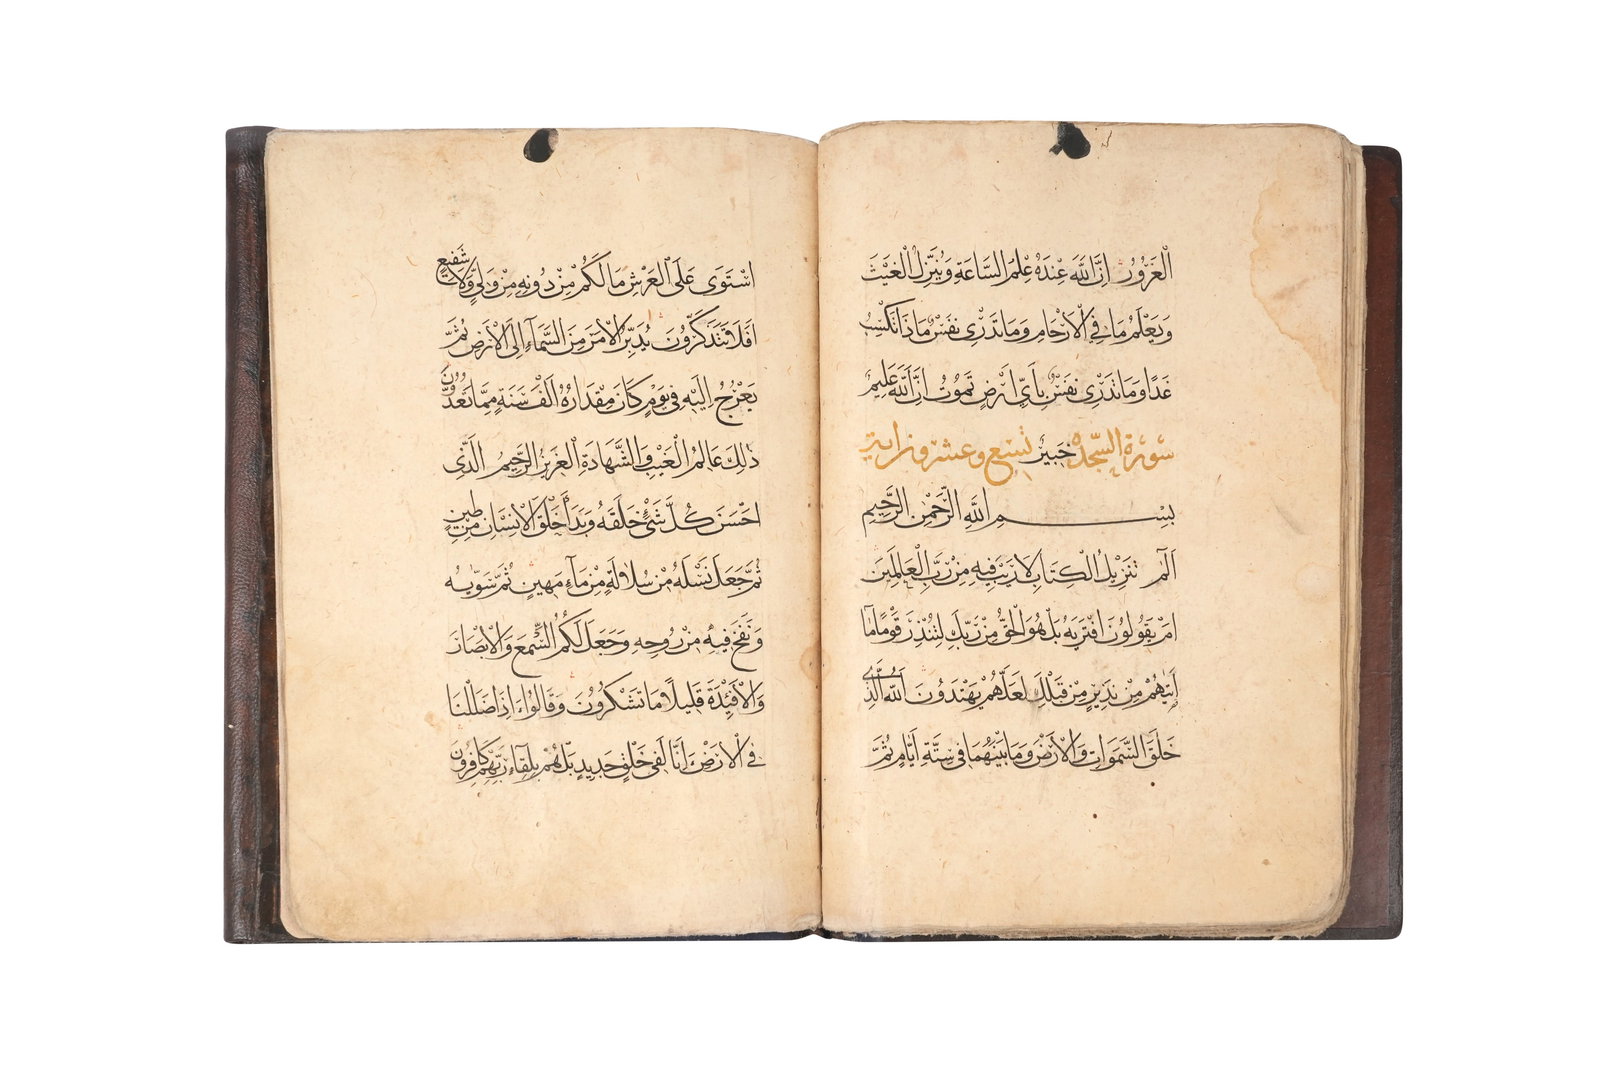 الْغَرُورُ اِنَّ اللّٰهَ عِنْدَهُ عِلْمُ السَّاعَةِ وَيُنَزِّلُ الْغَيْثَ
وَيَعْلَمُ مَا فِي الْاَرْحَامِ وَمَا تَدْرِي نَفْسٌ مَاذَا تَكْسِبُ
غَدًا وَمَا تَدْرِي نَفْسٌ بِاَيِّ اَرْضٍ تَمُوتُ اِنَّ اللّٰهَ عَلِيمٌ
سورة السجدة خَبِيرٌ تسع وعشرون اية
بِسْمِ اللّٰهِ الرَّحْمٰنِ الرَّحِيمِ
الٓمٓ تَنْزِيلُ الْكِتَابِ لَا رَيْبَ فِيهِ مِنْ رَبِّ الْعَالَمِينَ
اَمْ يَقُولُونَ افْتَرٰيهُ بَلْ هُوَ الْحَقُّ مِنْ رَبِّكَ لِتُنْذِرَ قَوْمًا مَٓا
اَتٰيهُمْ مِنْ نَذِيرٍ مِنْ قَبْلِكَ لَعَلَّهُمْ يَهْتَدُونَ اَللّٰهُ الَّذِي
خَلَقَ السَّمٰوَاتِ وَالْاَرْضَ وَمَا بَيْنَهُمَا فِي سِتَّةِ اَيَّامٍ ثُمَّ
اسْتَوَى عَلَى الْعَرْشِ مَا لَكُمْ مِنْ دُونِهِ مِنْ وَلِيٍّ وَلَا شَفِيعٍ
اَفَلَا تَتَذَكَّرُونَ يُدَبِّرُ الْاَمْرَ مِنَ السَّمَٓاءِ اِلَى الْاَرْضِ ثُمَّ
يَعْرُجُ اِلَيْهِ فِي يَوْمٍ كَانَ مِقْدَارُهُ اَلْفَ سَنَةٍ مِمَّا تَعُدُّونَ
ذٰلِكَ عَالِمُ الْغَيْبِ وَالشَّهَادَةِ الْعَزِيزُ الرَّحِيمُ الَّذِي
اَحْسَنَ كُلَّ شَيْءٍ خَلَقَهُ وَبَدَأَ خَلْقَ الْاِنْسَانِ مِنْ طِينٍ
ثُمَّ جَعَلَ نَسْلَهُ مِنْ سُلَالَةٍ مِنْ مَٓاءٍ مَهِينٍ ثُمَّ سَوّٰيهُ
وَنَفَخَ فِيهِ مِنْ رُوحِهِ وَجَعَلَ لَكُمُ السَّمْعَ وَالْاَبْصَارَ
وَالْاَفْئِدَةَ قَلِيلًا مَا تَشْكُرُونَ وَقَالُوا ءَاِذَا ضَلَلْنَا
فِي الْاَرْضِ ءَاِنَّا لَفِي خَلْقٍ جَدِيدٍ بَلْ هُمْ بِلِقَٓاءِ رَبِّهِمْ كَافِرُونَ